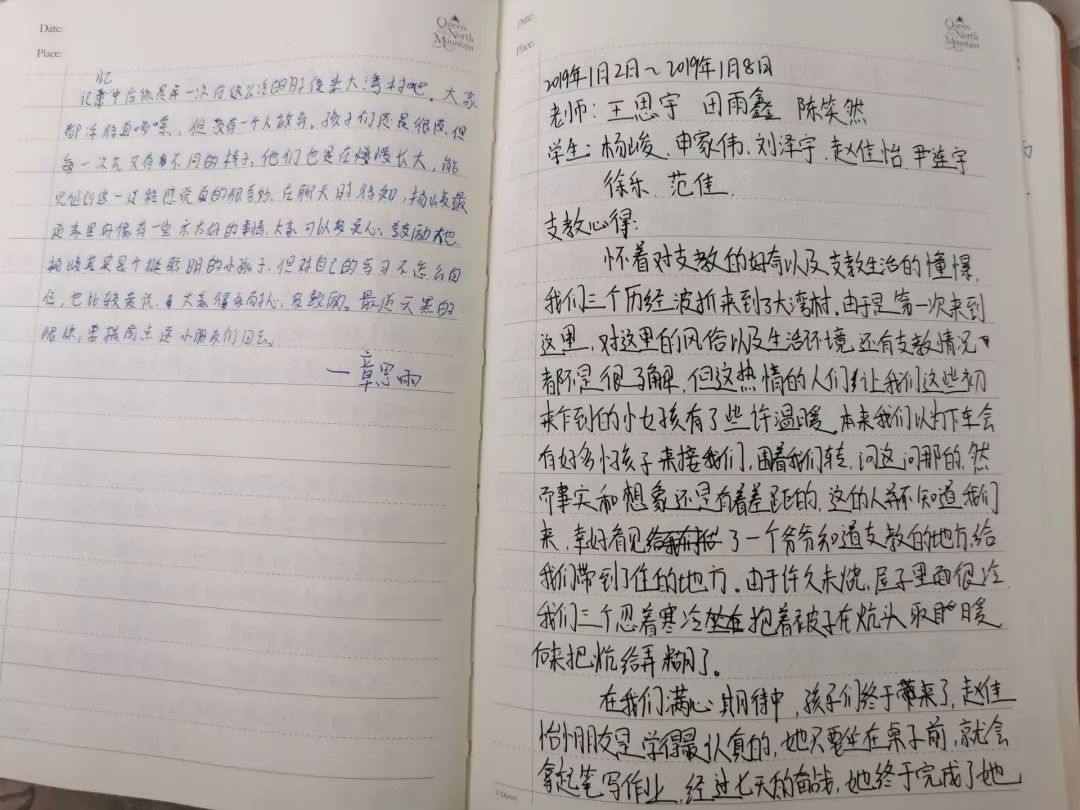 Date:
Place:
Queen
of the
North
Mountain
忆
记事中应该是第一次在这么冷的时候来大湾村吧。大家
都冻得直哆嗦，但没有一个人放弃。孩子们还是很皮，但
每一次见又有不同的样子，他们也是在慢慢长大，能
见证到这一过程感觉真的很奇妙。在聊天时得知，杨峻最
近家里好像有一些不太好的事情，大家可以多关心，鼓励他。
杨峻其实是个挺聪明的小孩子，但对自己的学习不怎么自
信，也比较爱玩，大家得多有耐心，多鼓励。最近天黑的
很快，要提前点送小朋友们回去。
—章思雨
Date:
Place:
Queen
of the
North
Mountain
2019年1月2日～2019年1月8日
老师：王思宇 田雨鑫 陈笑然
学生：杨峻，申家伟，刘泽宇，赵佳怡，尹莲宇
徐乐，范佳，
支教心得：
怀着对支教的好奇以及支教生活的憧憬，
我们三个历经波折来到了大湾村，由于是第一次来到
这里，对这里的风俗以及生活环境还有支教情况
都不是很了解，但这热情的人们让我们这些初
来乍到的小女孩有了些许温暖，本来我们以为下车会
有好多小孩子来接我们，围着我们转，问这问那的，然
而事实和想象还是有着差距的，这的人并不知道我们
来，幸好看见了一个爷爷知道支教的地方，给
我们带到了住的地方。由于许久未烧，屋子里面很冷，
我们三个忍着寒冷抱着被子在炕头取暖
后来把炕给弄糊了。
在我们满心期待中，孩子们终于来了，赵佳
怡小朋友是学得最认真的，她只要坐在桌子前，就会
拿起笔写作业，经过七天的奋战，她终于完成了她
©Disney